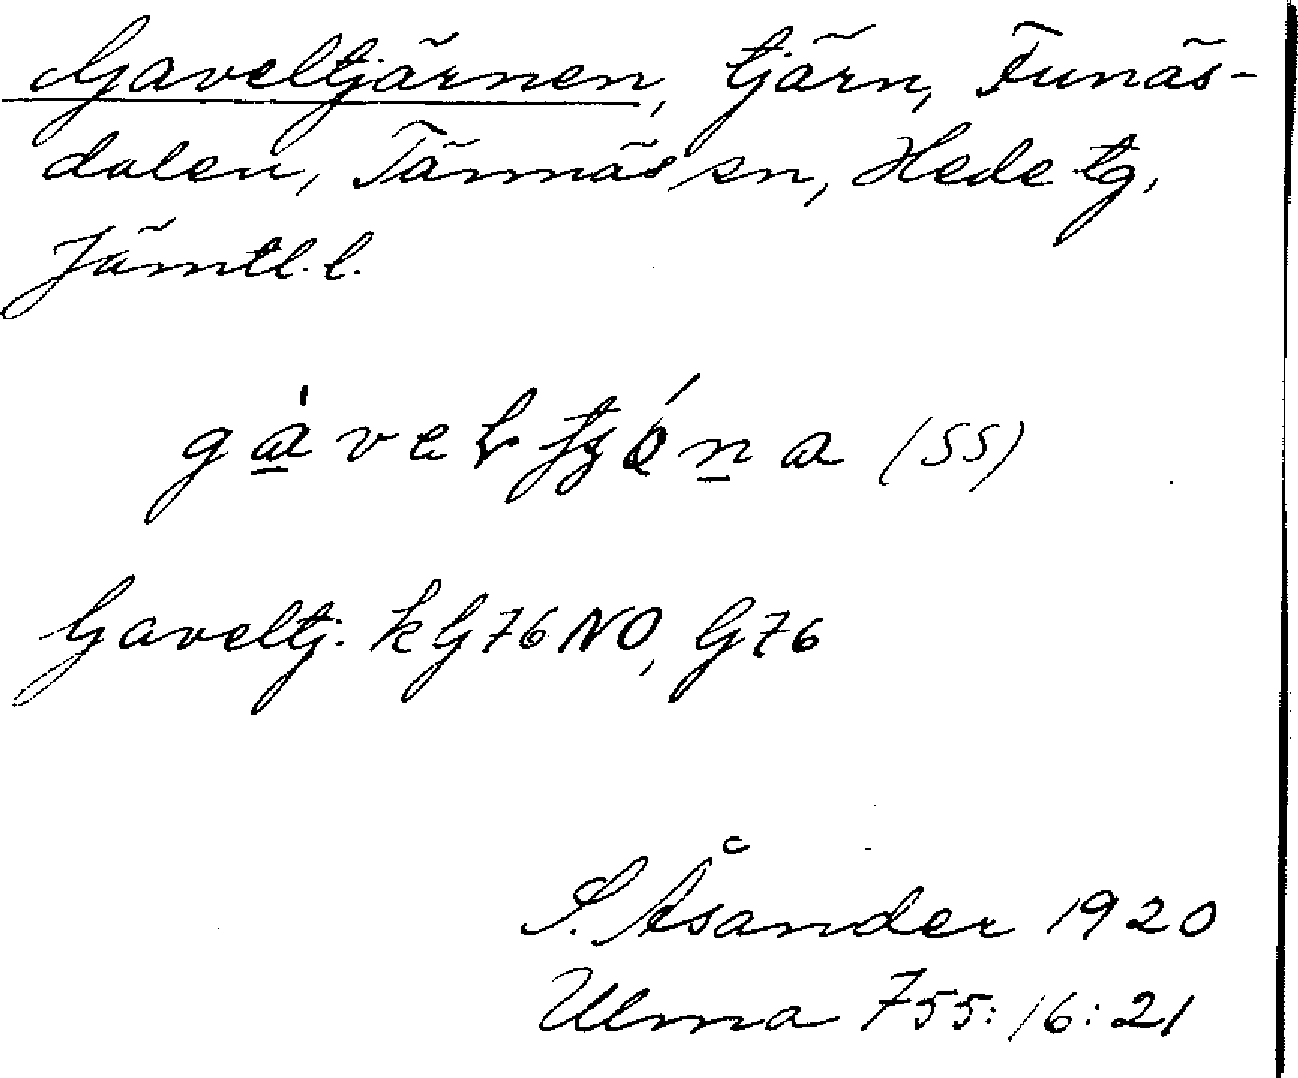 Gaveltjärnen, tjärn, Funäs-
dalen, Tännäs sn, Hede tg,
Jämtl. l.
(SS)
Gaveltj. k G 76 NO, G 76
S. Åsander 1920
Ulma 755:16:21